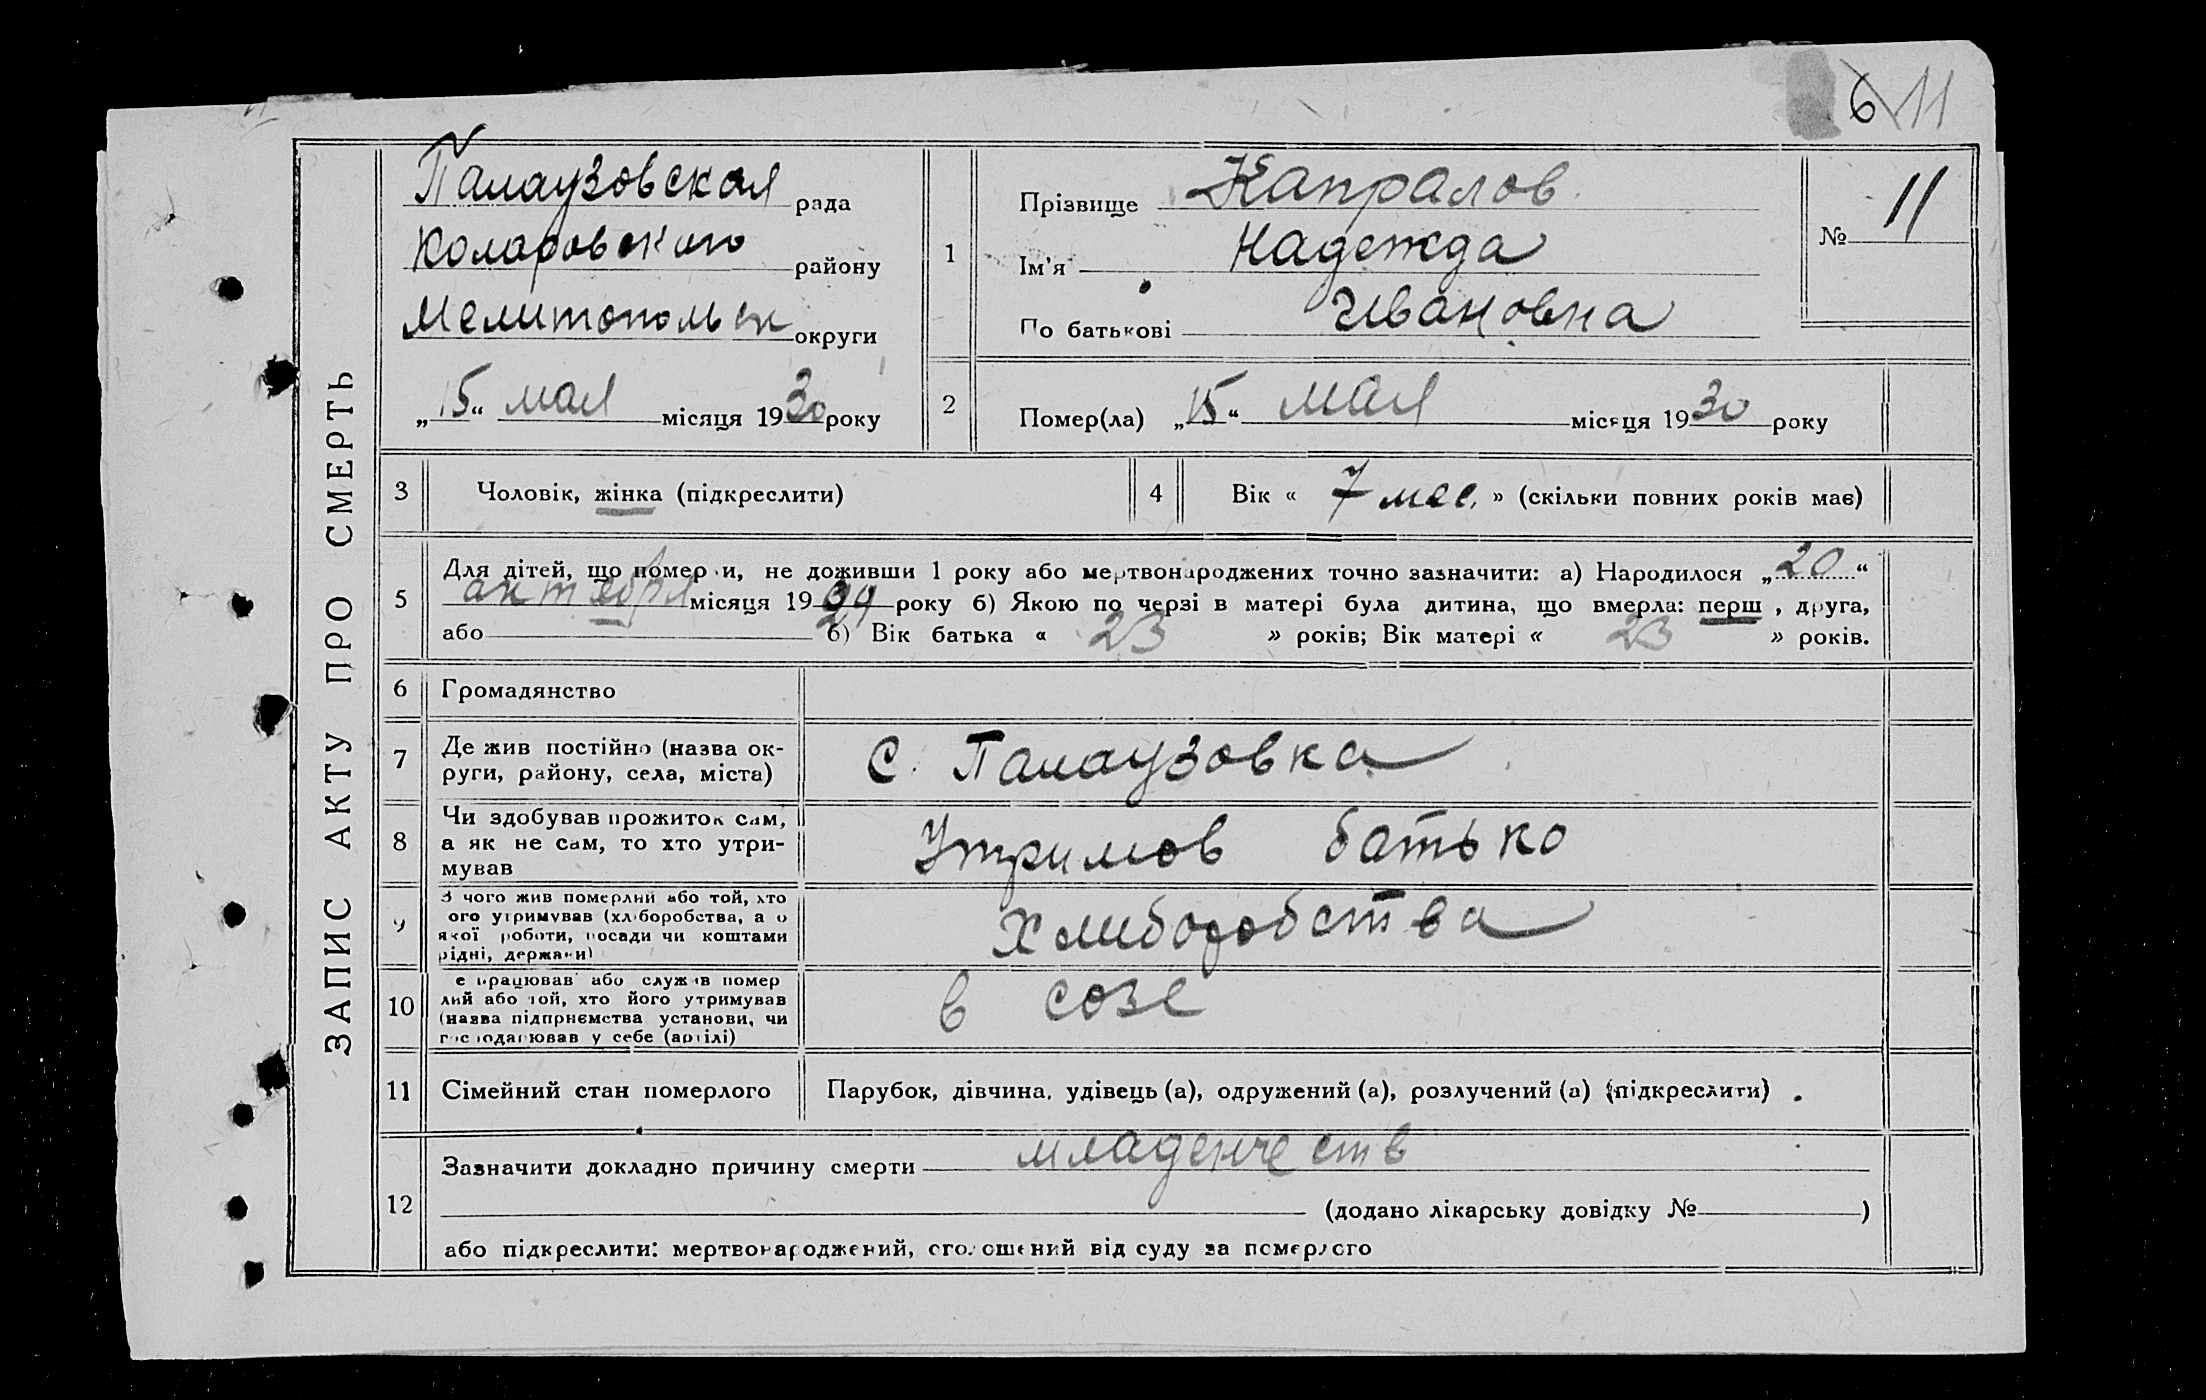 6 11
ЗАПИС АКТУ ПРО СМЕРТЬ
Палаузовская рада
Коларовского району
Мелитопольск округи
„15“ мая місяця 1930 року
1
Прізвище Капралов
Ім'я Надежда
По батькові Ивановна
№ 11
2
Помер(ла) „15“ мая місяця 1930 року
3 Чоловік, жінка (підкреслити)
4 Вік « 7 мес. » (скільки повних років має)
5
Для дітей, що померли, не доживши 1 року або мертвонароджених точно зазначити: а) Народилося „20“
актебря місяця 1929 року б) Якою по черзі в матері була дитина, що вмерла: перш , друга,
або б) Вік батька « 23 » років; Вік матері « 23 » років.
6 Громадянство
7 Де жив постійно (назва ок-
руги, району, села, міста)
С. Палаузовка
8 Чи здобував прожиток сам,
а як не сам, то хто утри-
мував
Утримов батько
9 З чого жив померлий або той, хто
ого утримував (хліборобства, а о
якої роботи, посади чи коштами
рідні, держави)
Хлиборобства
10 е працював або служив помер
лий або той, хто його утримував
(назва підприємства установи, чи
господарював у себе (артілі)
в созе
11 Сімейний стан померлого
Парубок, дівчина, удівець (а), одружений (а), розлучений (а) (підкреслити)
12
Зазначити докладно причину смерти младенчеств
(додано лікарську довідку № )
або підкреслити: мертвонароджений, оголошений від суду за померлого